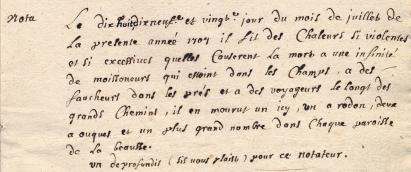 Nota
Le dix huit dix neuf.e et vingt.e jour du mois de juillet de
La presente anneé 1707 il fit des Chaleurs si violentes
et si excessives quelles Couserent La mort a une infinité
de moissoneurs qui estoint dans les Champs, a des
faucheurs dans les prés et a des voyageurs le longt des
grands Chemins, il en mourut un icy, un a rodon, deux
a ouques et un plus grand nombre dans Chaque paroisse
de La beausse.
un deprofundis (sil vous plaist) pour ce notateur.